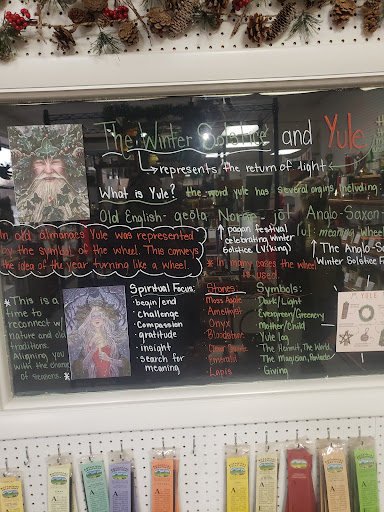 The Winter Solstice and Yule
represents the return of light
What is Yule? the word yule has several orgins, including
Old English- geōla Norse- jōl Anglo-Saxon-
pagan festival
celebrating Winter
Solstice (Viking)
meaning wheel
The Anglo-Sa
Winter Solstice F
In old almanacs Yule was represented
by the symbol of the wheel. This conveys
the idea of the year turning like a wheel.
* in many cases the wheel
is used.
* This is a
time to
reconnect w/
nature and old
traditions.
Aligning you
with the change
of seasons. *
Spiritual Focus:
· begin/end
· challenge
· compassion
· gratitude
· insight
· search for
meaning
Stones:
· Moss Agate
· Amethyst
· Onyx
· Bloodstone
· Clear Quartz
· Emerald
· Lapis
Symbols:
· Dark/Light
· Evergreen/Greenery
· Mother/Child
· Yule Log
· The Hermit, The World,
The Magician,
· Giving
YULE